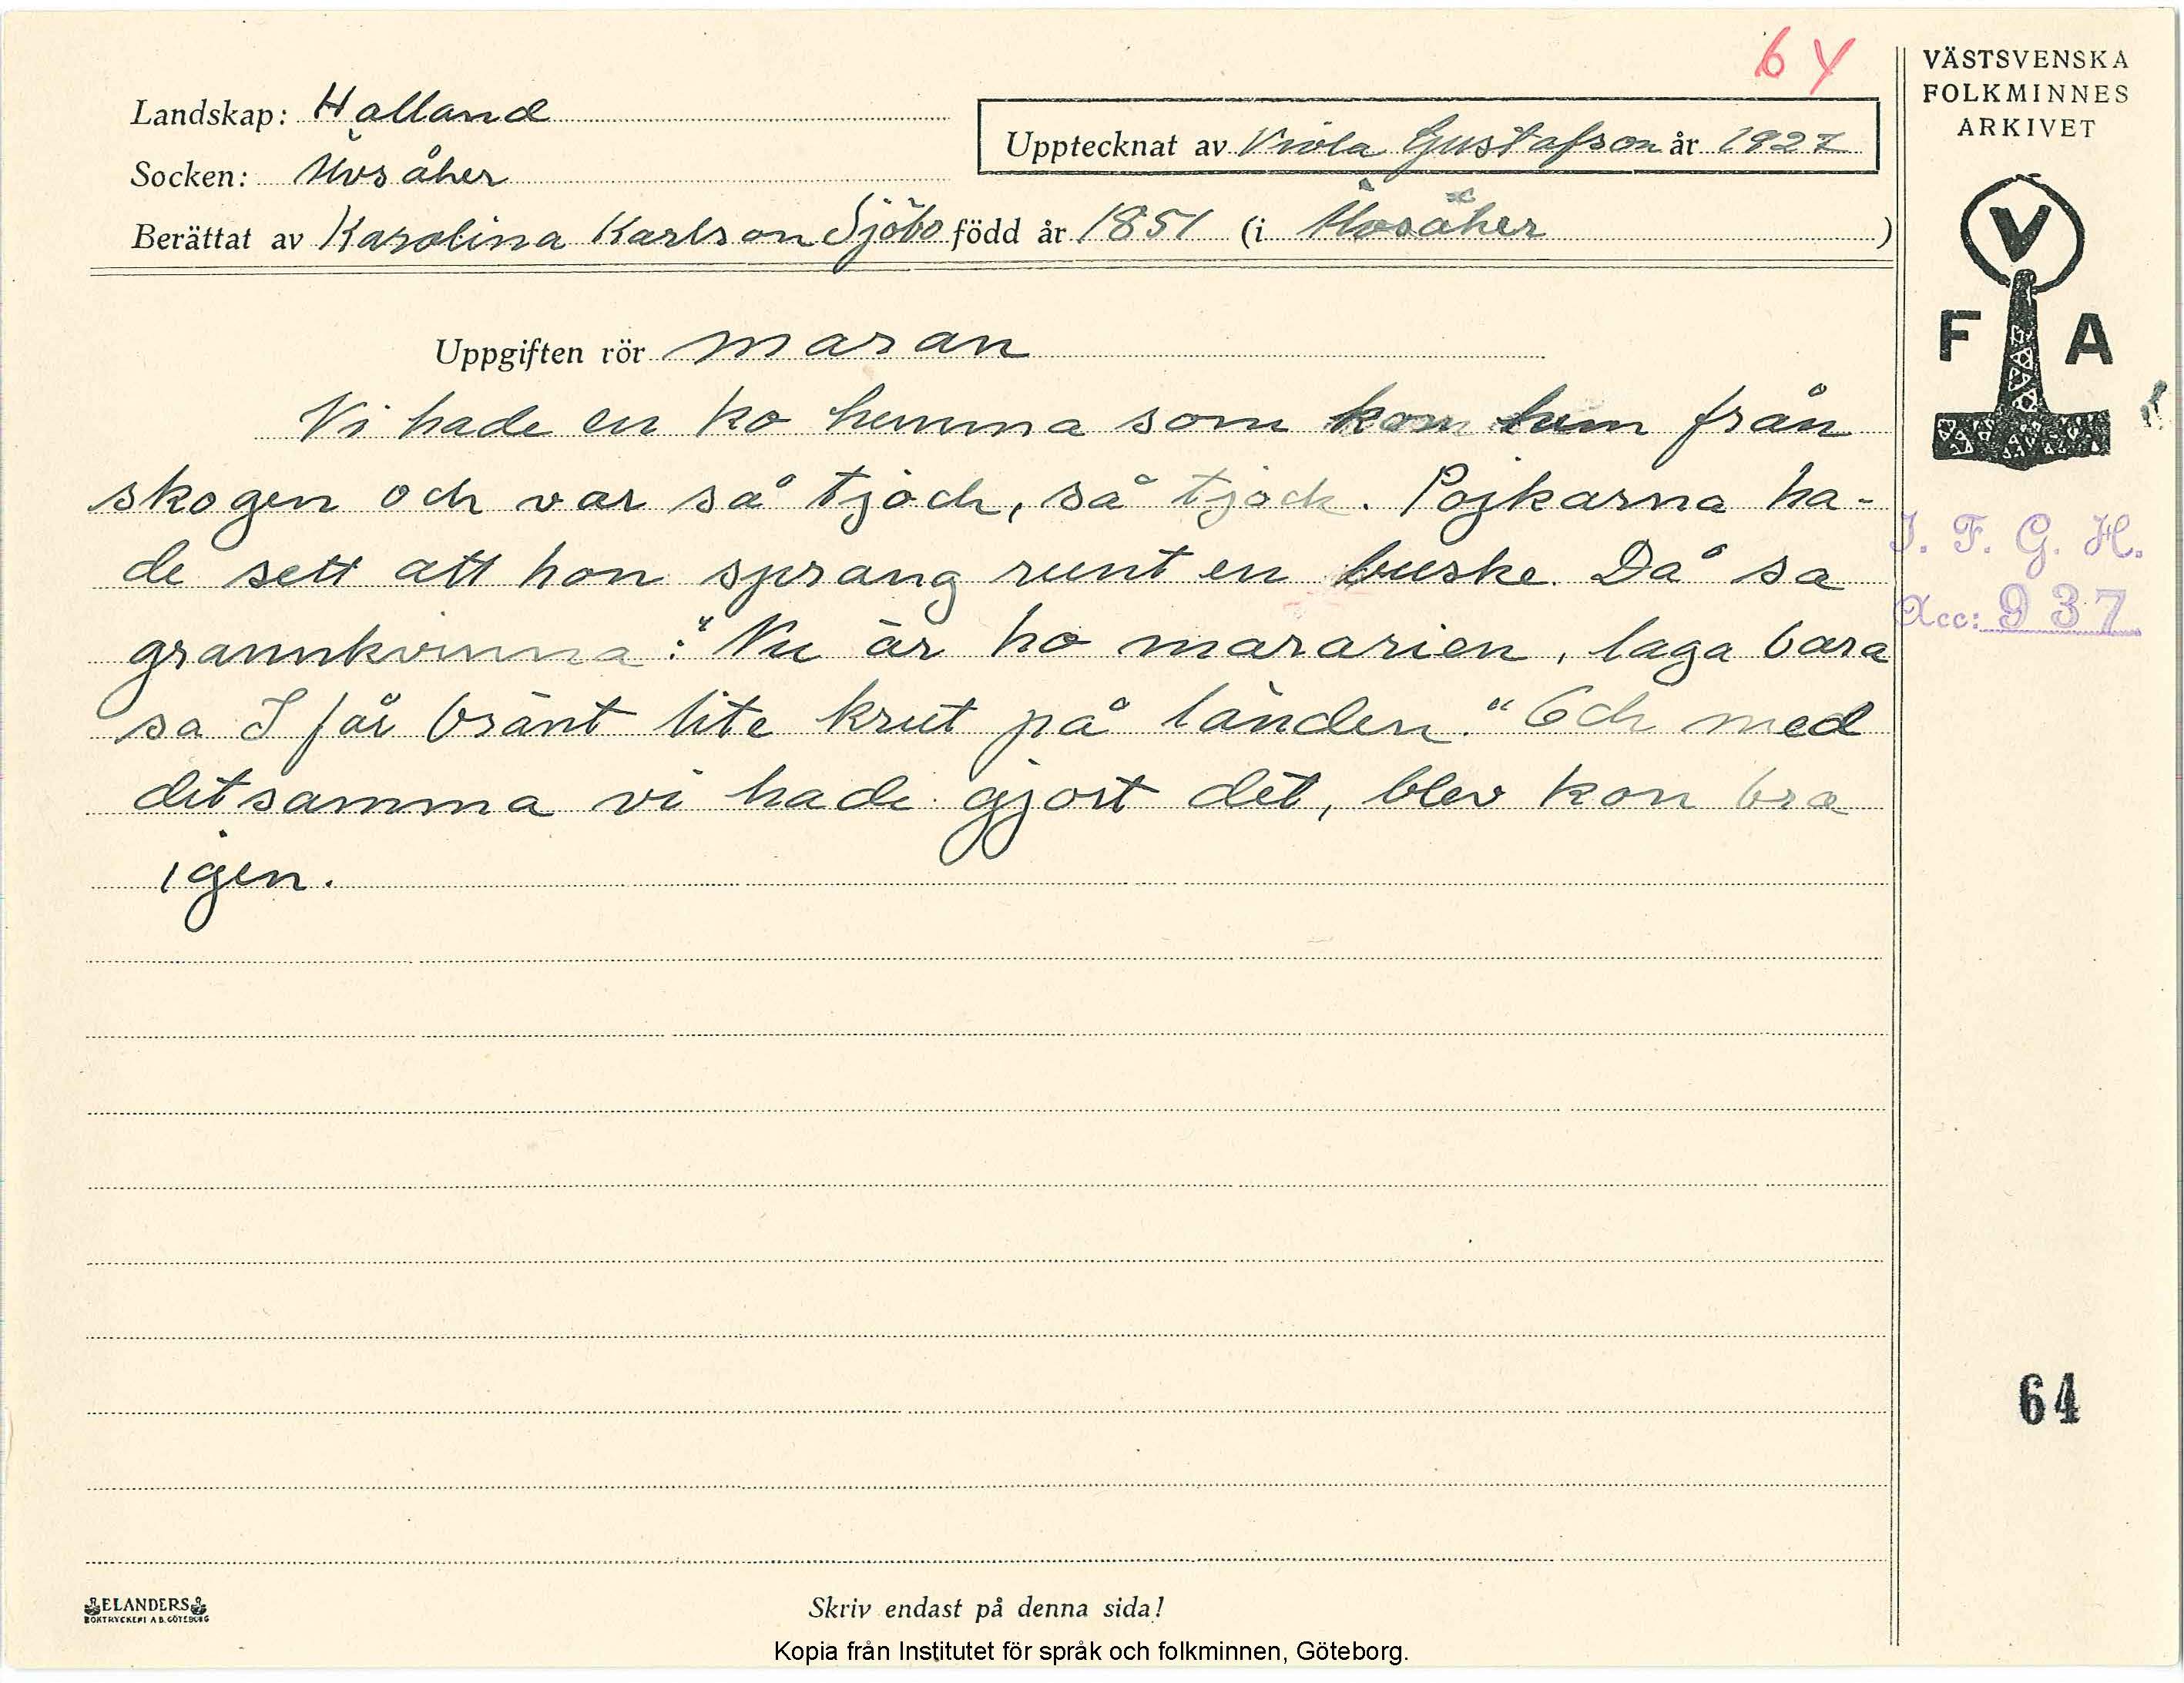 64
VÄSTSVENSKA
FOLKMINNES
ARKIVET
Landskap: Halland
Upptecknat av Viola Gustafson år 1927
Socken: Älvsåker
Berättat av Karolina Karlson Sjöbo född år 1851 (i Älvsåker)
V
F A
Uppgiften rör maran
Vi hade en ko hemma som kom hem från
skogen och var så tjock, så tjock. Pojkarna ha-
de sett att hon sprang runt en buske. Då sa
grannkvinna: "Nu är ho mararien, laga bara
sa I får bränt lite krut på länden." Och med
detsamma vi hade gjort det, blev kon bra
igen.
I. F. G. H.
Acc: 937
64
ELANDERS
BOKTRYCKERI A.B. GÖTEBORG
Skriv endast på denna sida!
Kopia från Institutet för språk och folkminnen, Göteborg.